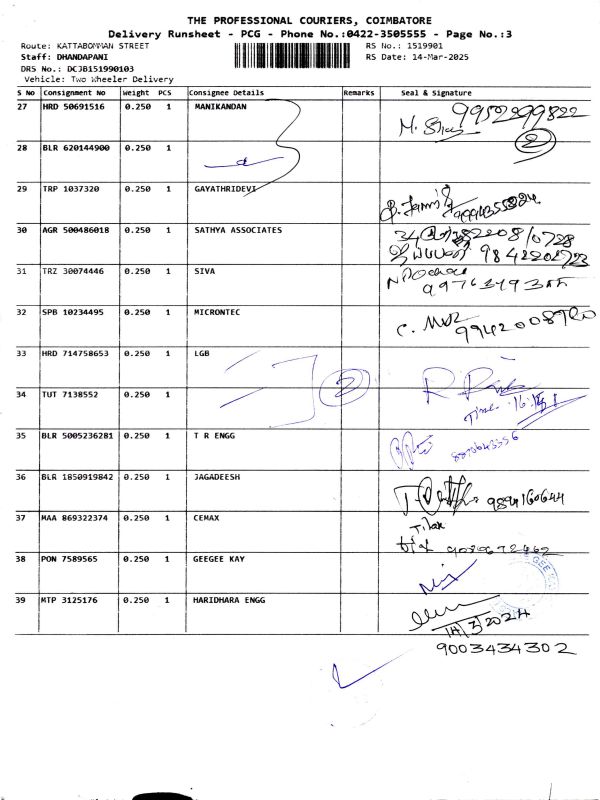 THE PROFESSIONAL COURIERS, COIMBATORE
Delivery Runsheet - PCG - Phone No.:0422-3505555 - Page No.:3
Route: KATTABOMMAN STREET
RS No.: 1519901
Staff: DHANDAPANI
RS Date: 14-Mar-2025
DRS No.: DCJB151990103
Vehicle: Two Wheeler Delivery
S No Consignment No Weight PCS Consignee Details Remarks Seal & Signature
27 HRD 50691516 0.250 1 MANIKANDAN 9952299822
28 BLR 620144900 0.250 1 2
29 TRP 1037320 0.250 1 GAYATHRIDEVI
30 AGR 500486018 0.250 1 SATHYA ASSOCIATES
9842202723
31 TRZ 30074446 0.250 1 SIVA
32 SPB 10234495 0.250 1 MICRONTEC
33 HRD 714758653 0.250 1 LGB 2
34 TUT 7138552 0.250 1
35 BLR 5005236281 0.250 1 T R ENGG
36 BLR 1850919842 0.250 1 JAGADEESH 9894160644
37 MAA 869322374 0.250 1 CEMAX Tilak
38 PON 7589565 0.250 1 GEEGEE KAY
39 MTP 3125176 0.250 1 HARIDHARA ENGG
14/3/2024
9003434302